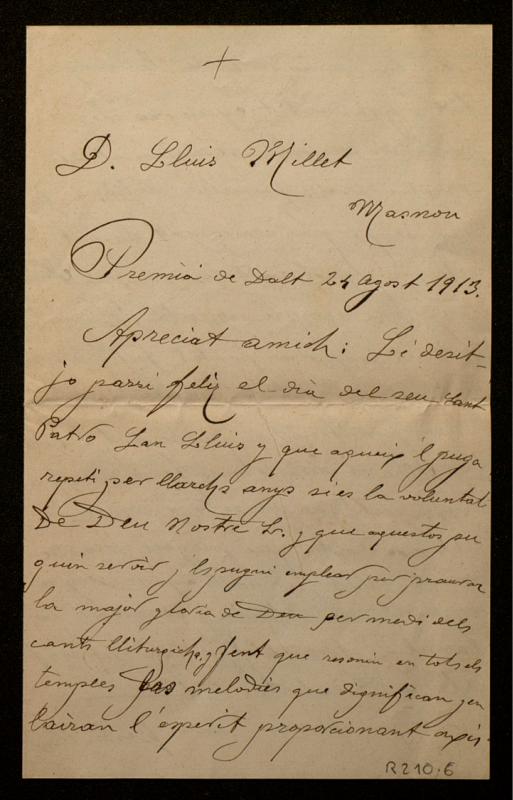 +
D. Lluis Millet
Masnou
Premiá de Dalt 24 Agost 1913.
Apreciat amich: Li desit-
jo passi feliz el dia del seu Sant
Patro San Lluis y que aqueix l puga
repeti per llarchs anys si es la voluntat
de Deu Nostre Sr. y que aquestos pu
guin servir y ls pugui emplear per procurar
la major gloria de Deu per medi dels
cants lliturgichs, y fent que resonin en tots els
temples las melodies que dignifican y en
lairan l'esperit proporcionant axis
R210.6